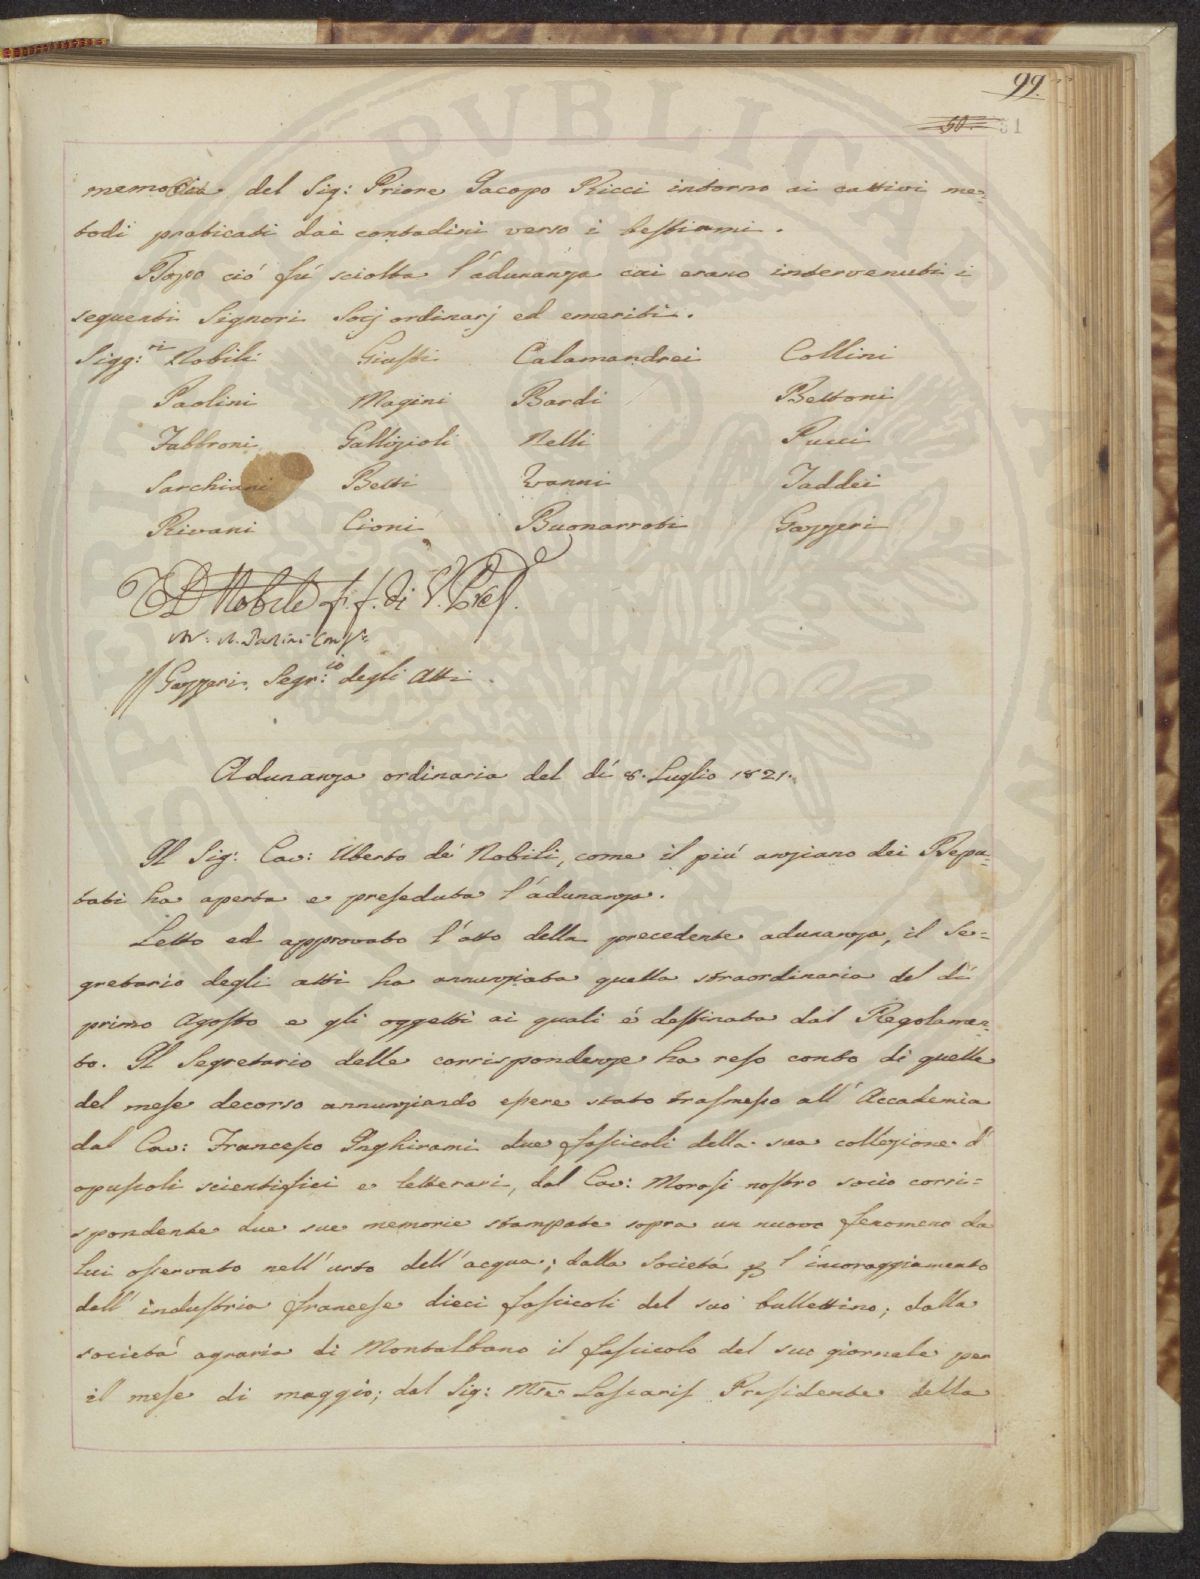 99.
50. 51
memoria del Sig: Priore Jacopo Ricci intorno ai cattivi me=
todi praticati dai contadini verso i bestiami.
Dopo ció fú sciolta l'adunanza cui erano intervenuti i
seguenti Signori Socj ordinarj ed emeriti.
Sigg:ri Nobili Giusti Calamandrei Collini
Paolini Magini Bardi Bettoni
Fabbroni Gallizioli Nelli Pucci
Sarchiani Betti Vanni Taddei
Rivani Cioni Buonarroti Gazzeri
Nobili f.f. di V. Pres.
Gazzeri Segr:io degli Atti.
Adunanza ordinaria del dí 8. Luglio 1821.
Il Sig: Cav: Uberto de' Nobili, come il piú anziano dei Depu=
tati ha aperta e preseduta l'adunanza.
Letto ed approvato l'atto della precedente adunanza, il Se=
gretario degli atti ha annunziata quella straordinaria del dí
primo Agosto e gli oggetti ai quali é destinata dal Regolamen=
to. Il Segretario delle corrispondenze ha reso conto di quelle
del mese decorso annunziando essere stato trasmesso all'Accademia
dal Cav: Francesco Inghirami due fascicoli della sua collezione d'
opuscoli scientifici e letterari, dal Cav: Morosi nostro socio corri=
spondente due sue memorie stampate sopra un nuovo fenomeno da
lui osservato nell'urto dell'acqua; dalla Societá p l'incoraggiamento
dell'industria francese dieci fascicoli del suo bullettino; dalla
societá agraria di Montalbano il fascicolo del suo giornale per
il mese di maggio; dal Sig: Mse Lascaris Presidente della